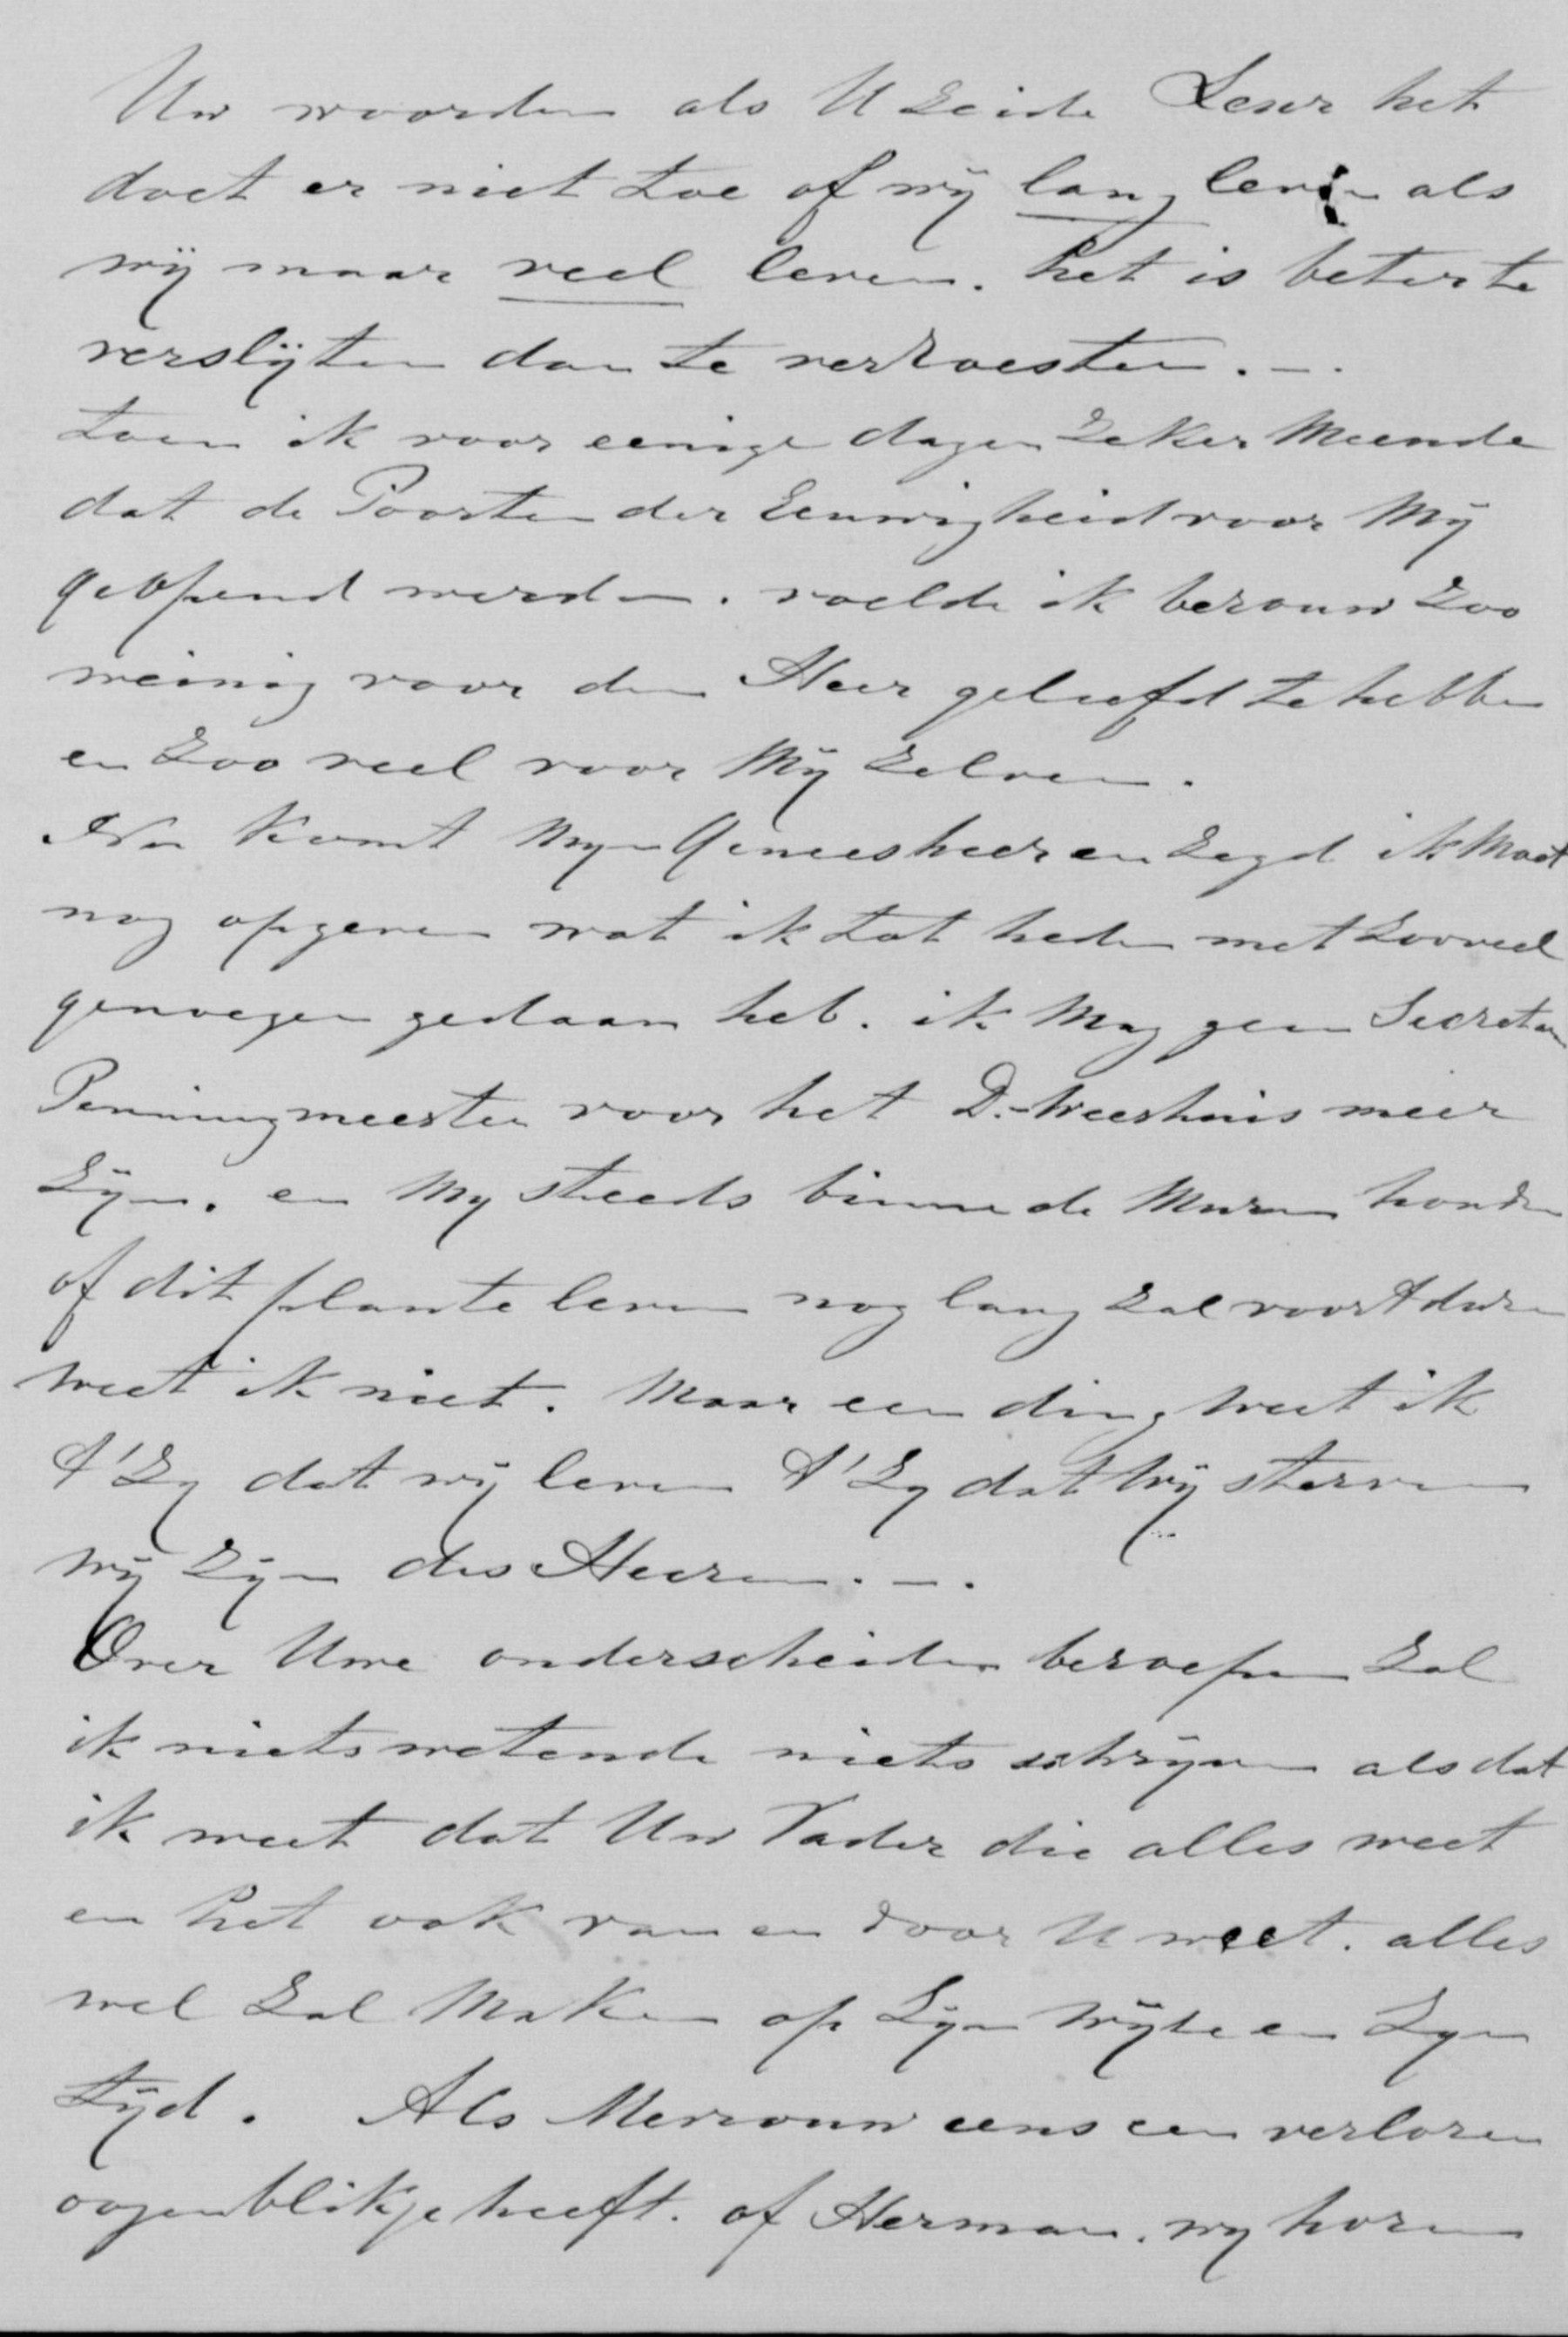 Uw woorden als U zeide Leser het
doet er niet toe of wij lang leven als
wij maar veel leven. het is beter te
verslijten dan te verroesten. —.
toen ik voor eenige dagen zeker Meende
dat de Poorten der Eeuwigheid voor Mij
geopend werden. voelde ik berouw zoo
weinig voor den Heer geleefd te hebben
en zoo veel voor Mij zelven.
Nu komt Myn Geneesheer en zegd ik Moet
nog opgeven wat ik tot heden met zooveel
genoegen gedaan heb. ik Mag geen Secretar
Penningmeester voor het D. Weeshuis meer
zijn. en My steeds binnen de Muren houden
of dit plante leven nog lang zal voortduren
weet ik niet. Maar een ding weet ik
t'Zy dat wij leven t'Zy dat Wij sterven
Wij zijn des Heeren. —.
Over Uwe onderscheiden beroepen zal
ik niets wetende niets schrijven als dat
ik weet dat Uw Vader die alles weet
en het ook van en door U weet. alles
wel zal Maken op Zijn Wijze en Zyn
tijd. Als Mevrouw eens een verloren
oogenblikje heeft. of Herman. wy horen